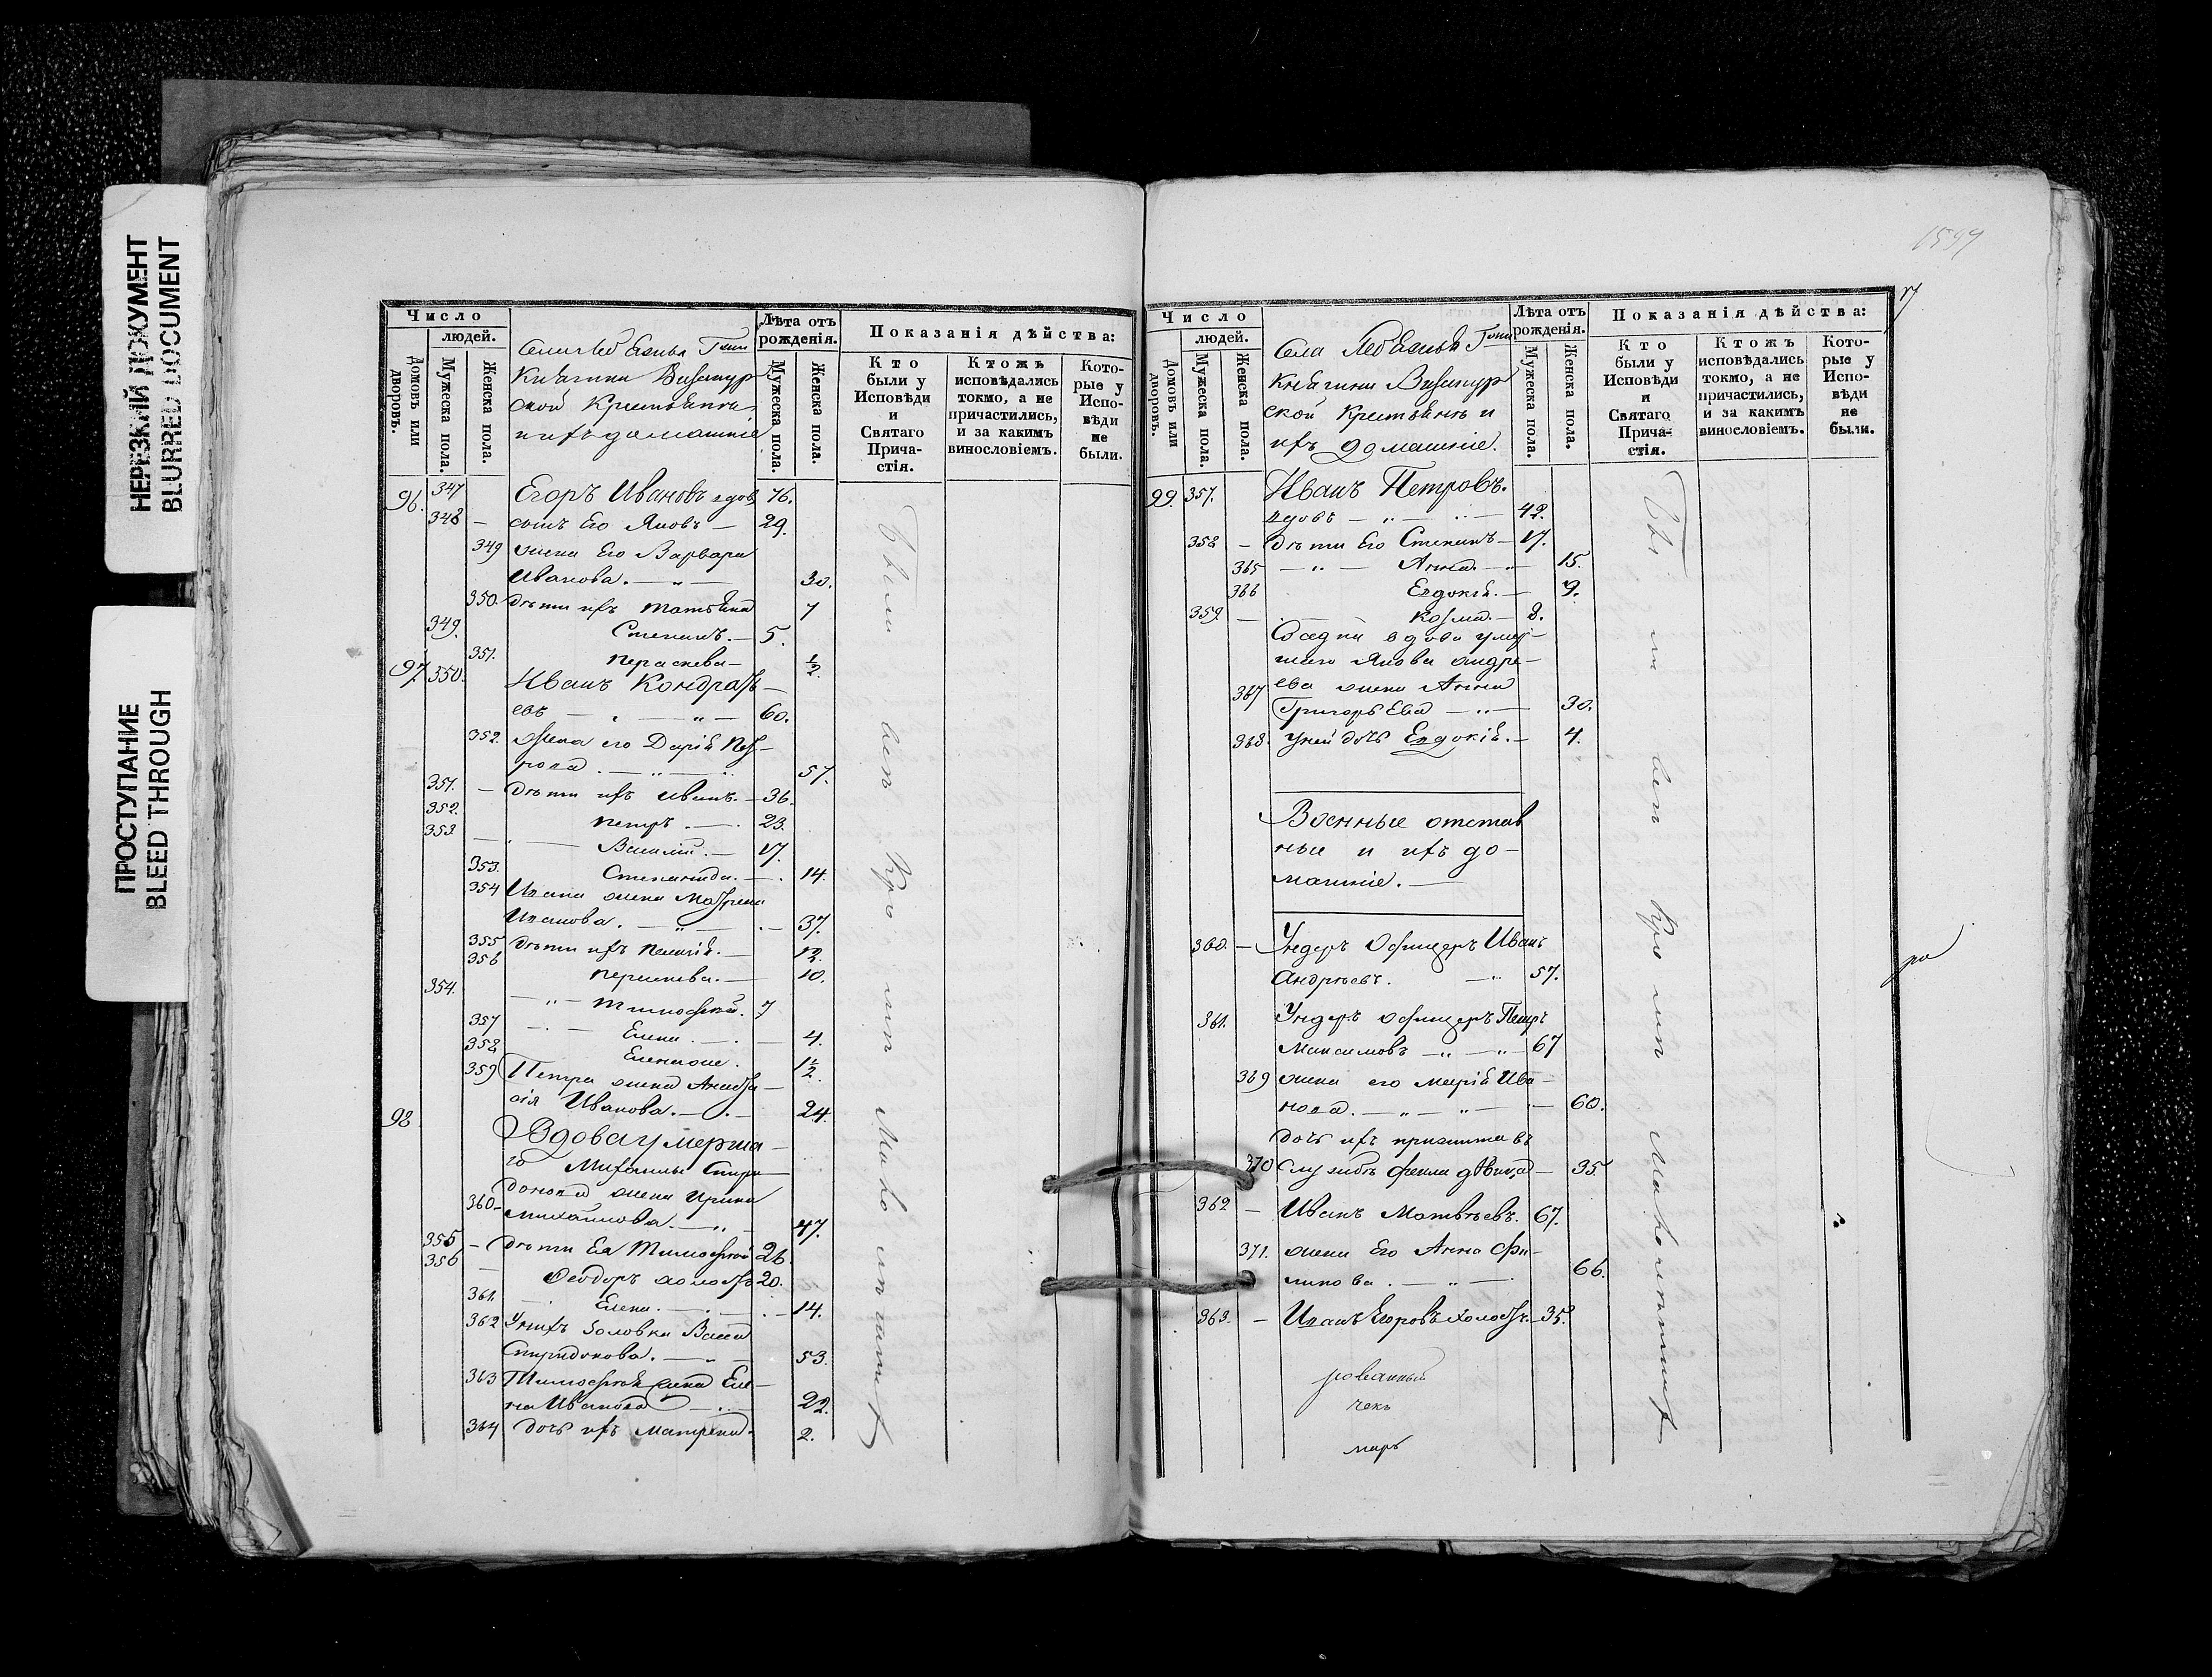 НЕРЕЗКИЙ ДОКУМЕНТ
BLURRED DOCUMENT
ПРОСТУПАНИЕ
BLEED THROUGH
Число
людей.
Домовъ или дворовъ.
Мужеска пола.
Женска пола.
Княгини Визапур
ской Крестьяне
и ихъ домашніе
Лѣта отъ рожденія.
Мужеска пола.
Женска пола.
Показанія дѣйства:
Кто были у Исповѣди и Святаго Прича-стія.
Ктожъ исповѣдались токмо, а не причастились, и за какимъ винословіемъ.
Кото-рые у Испо-вѣди не были.
96. 347 Егоръ Ивановъ вдов 76.
348 — сынъ Его Яковъ — 29.
349 жена Его Варвара
Иванова. — 30.
350. дѣти ихъ Татьяна 7
349. Степанъ. — 5.
351. Параскева — 1/2.
97. 350. Иванъ Кондрать—
евъ — 60.
352. Жена его Дарія Пет—
рова. — 57.
351. — дѣти ихъ Иванъ. — 36.
352. Петръ. — 23.
353. — Василій. — 17.
353. Степанида. — 14.
354 Ивана жена Матрена
Иванова. — 37.
355 дѣти ихъ Пелагія. — 12.
356 Параскева. — 10.
354. — Тимофей. 7
357 — Елена. — 4.
358 1 1/2.
359 Петра жена Анаста—
сія Иванова. — 24.
98 Вдова умерша—
го Михаилы Спири—
донова жена Ирина
360 — Михайлова. — 47.
355 — дѣти Ея Тимофей 26.
356 — Феодоръ холостъ 20.
361. — Елена. — 14.
362 У нихъ золовка Васса
Спиридонова. — 53.
363 Тимофея жена Еле—
на Иванова — 22.
364 дочь ихъ Матрена. 2.
Были вси
1599
17
Число
людей.
Домовъ или дворовъ.
Мужеска пола.
Женска пола.
Села
Княгини Визапур
ской Крестьянъ и
ихъ домашніе.
Лѣта отъ рожденія.
Мужеска пола.
Женска пола.
Показанія дѣйства:
Кто были у Исповѣди и Святаго Прича-стія.
Ктожъ исповѣдались токмо, а не причастились, и за какимъ винословіемъ.
Кото-рые у Испо-вѣди не были.
99. 357. Иванъ Петровъ.
вдовъ — 42.
358 — дѣти Его Степанъ — 17.
365 — Анна. — 15.
366 Евдокія. — 9.
359 — Козма. — 8.
вдова умер—
шаго Якова Андре—
ева жена Анна
367 Григорьева — 30.
368. у ней дочь Евдокія. — 4.
Военные отстав
ные и ихъ до—
машніе. —
360. — Ундеръ Офицеръ Иванъ
Андрѣевъ. — 57.
361. Ундеръ Офицеръ Петръ
Максимовъ — 67
369 жена его Марія Ива—
нова. — 60.
дочь ихъ прижита въ
370 службѣ Фекла дѣвица — 35
362 — Иванъ Матвѣевъ. 67.
371. жена Его Анна Фи—
липова. — 66.
363. — Иванъ Егоровъ холостъ. — 35.
рованный
чекъ
маръ
ра